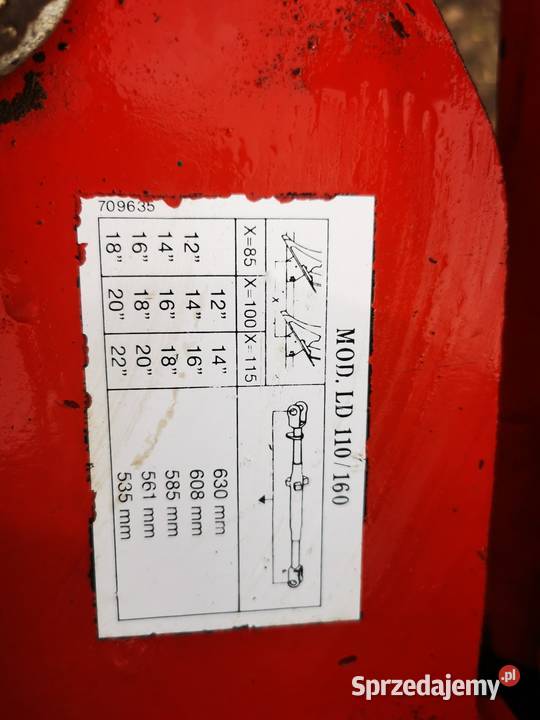 709635
MOD. LD 110/160
x
X=85 X=100 X=115
12" 14" 630 mm
12" 14" 16" 608 mm
14" 16" 18" 585 mm
16" 18" 20" 561 mm
18" 20" 22" 535 mm
Sprzedajemy.pl